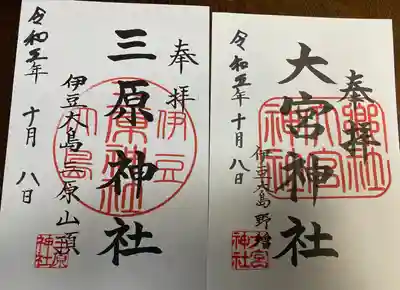 奉拝
三原神社
伊豆大島三原山頂
令和五年
十月八日
三原
神社
奉拝
大宮神社
伊豆大島野増
令和五年十月八日